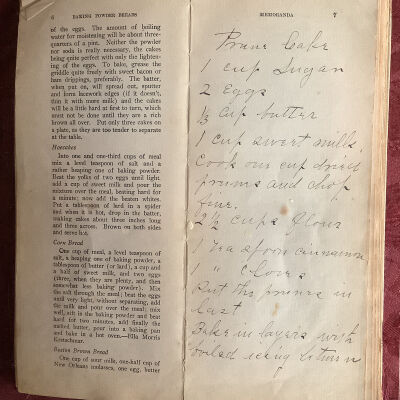 6 BAKING POWDER BREADS
of the eggs. The amount of boiling
water for moistening will be about three-
quarters of a pint. Neither the powder
nor soda is really necessary, the cakes
being quite perfect with only the lighten-
ing of the eggs. To bake, grease the
griddle quite freely with sweet bacon or
ham drippings, preferably. The batter,
when put on, will spread out, sputter
and form lacework edges (if it doesn't,
thin it with more milk) and the cakes
will be a little hard at first to turn, which
must not be done until they are a rich
brown all over. Put only three cakes on
a plate, as they are too tender to separate
at the table.
Hoecakes
Into one and one-third cups of meal
mix a level teaspoon of salt and a
rather heaping one of baking powder.
Beat the yolks of two eggs until light,
add a cup of sweet milk and pour the
mixture over the meal, beating hard for
a minute; now add the beaten whites.
Put a tablespoon of lard in a spider
and when it is hot, drop in the batter,
making cakes about three inches long
and three across. Brown on both sides
and serve hot.
Corn Bread
One cup of meal, a level teaspoon of
salt, a heaping one of baking powder, a
tablespoon of butter (or lard), a cup and
a half of sweet milk, and two eggs
(three, when they are plenty, and then
somewhat less baking powder). Mix
the salt through the meal; beat the eggs
until very light, without separating, add
the milk and pour over the meal; mix
well, sift in the baking powder and beat
hard for two minutes, add finally the
melted butter, pour into a baking pan
and bake in a hot oven.—Ella Morris
Kretschmar.
Boston Brown Bread
One cup of sour milk, one-half cup of
New Orleans molasses, one egg, butter
MEMORANDA 7
Prune Cake
1 cup Sugar
2 eggs
½ cup butter
1 cup sweet milk
Cook one cup dried
prunes and chop
fine.
2½ cups flour
1 Tea spoon cinnamon
" Cloves
Put the prunes in
last
Bake in layers with
boiled icing between